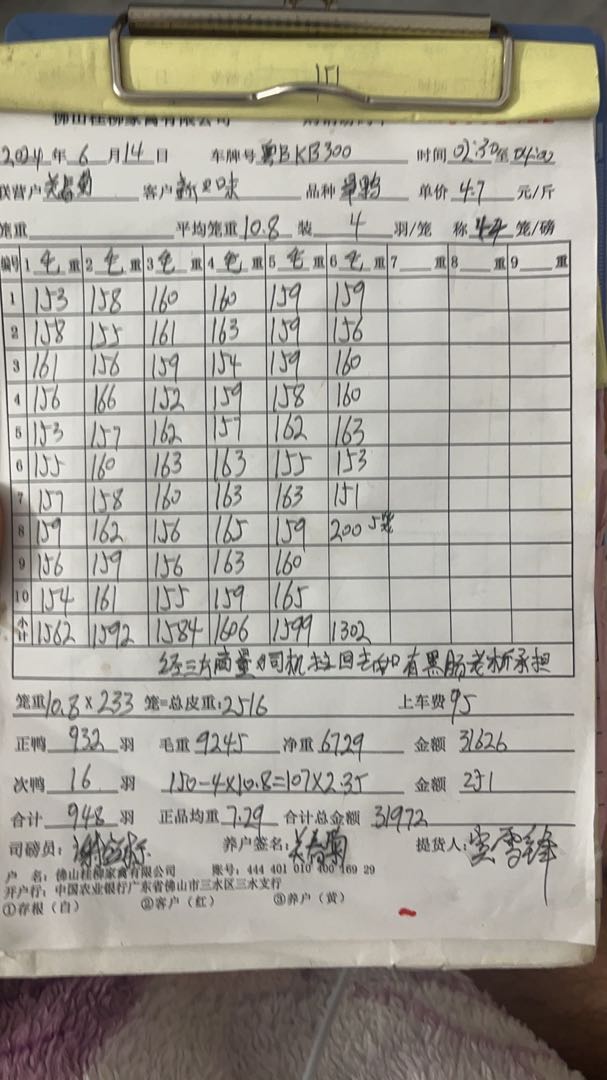 151
佛山桂柳家禽有限公司
2024 年 6 月 14 日 车牌号 粤BKB300 时间 02:30至04:00
联营户 关春菊 客户 新口味 品种 单价 4.7 元/斤
笼重 平均笼重 10.8 装 4 羽/笼 称 笼/磅
编号 1 毛 重 2 毛 重 3 毛 重 4 毛 重 5 毛 重 6 毛 重 7 重 8 重 9 重
1 153 158 160 160 159 159
2 158 155 161 163 159 156
3 161 156 159 154 159 160
4 156 166 152 159 158 160
5 153 157 162 157 162 163
6 155 160 163 163 155 153
7 157 158 160 163 163 151
8 159 162 156 165 159 200 5笼
9 156 159 156 163 160
10 154 161 155 159 165
小计 1562 1592 1584 1606 1599 1302
经三方商量 司机拉回去 有黑肠 承担
笼重 10.8 × 233 笼=总皮重: 2516 上车费 95
正鸭 932 羽 毛重 9245 净重 6729 金额 31626
次鸭 16 羽 150-4×10.8=107×2.35 金额 251
合计 948 羽 正品均重 7.29 合计总金额 31972
司磅员: 养户签名: 关春菊 提货人:
户 名: 佛山桂柳家禽有限公司 账号: 444 401 010 400 169 29
开户行: 中国农业银行广东省佛山市三水区三水支行
①存根（白） ②客户（红） ③养户（黄）